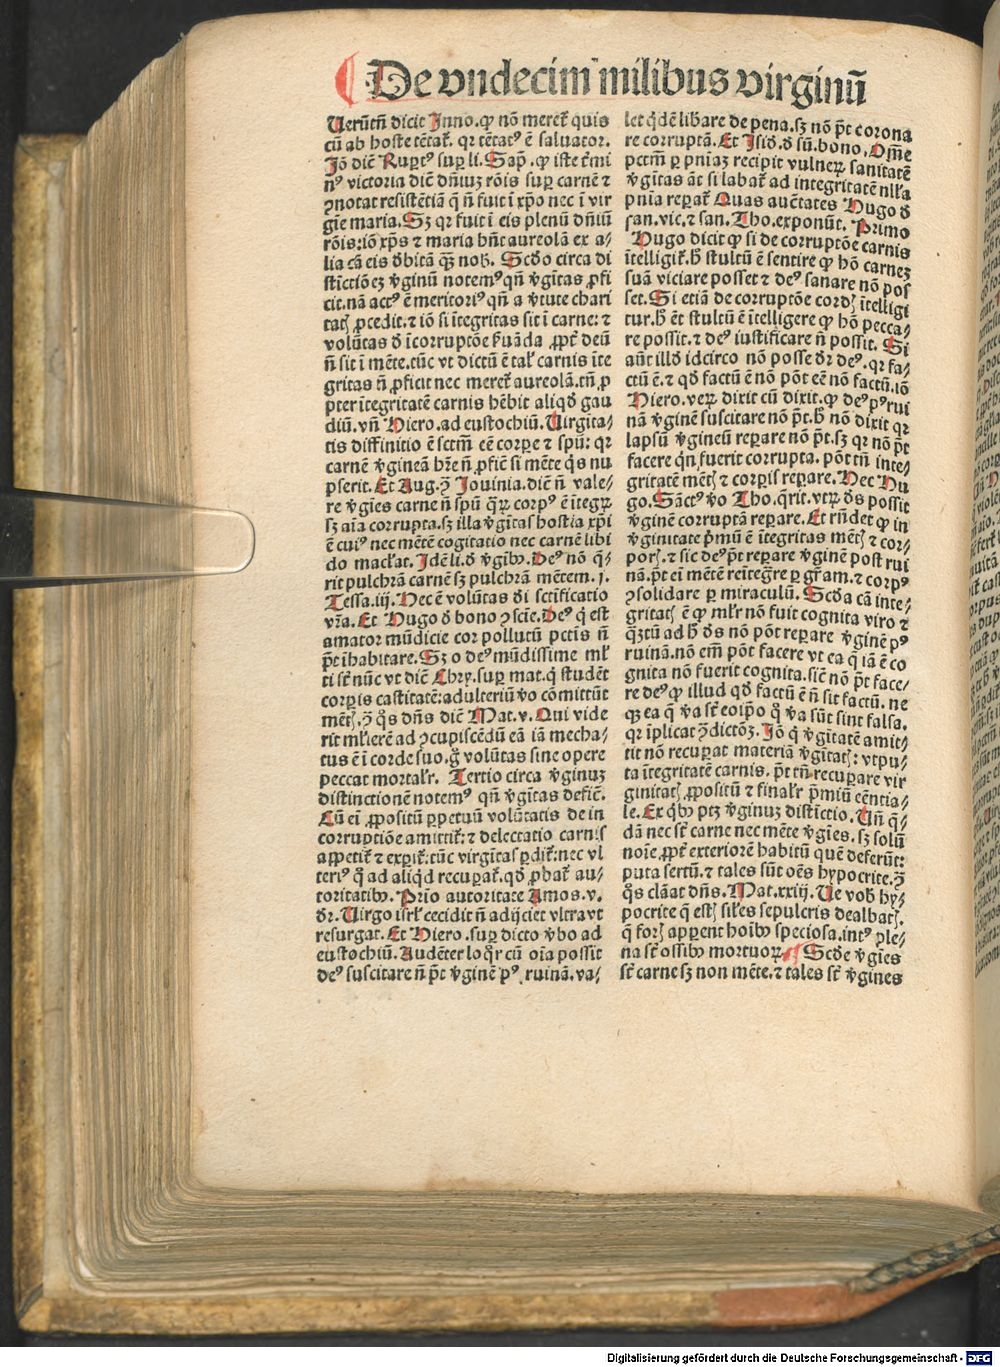 De vndecim milibus virginū
Uerūtñ dicit Inno. ꝙ nō meret᷑ quis
cū ab hoste tētat᷑. qꝛ tētatꝰ ē saluator.
Iō diē Rupt̉ꝰ suꝑ li. Sap̄. ꝙ iste t̉mi
nꝰ victoria diē dn̄iuꝫ rōis suꝑ carnē ⁊
ꝯnotat resistētiā q̄ n̄ fuit ī xp̄o nec ī vir
gīe maria. Sꝫ qꝛ fuit ī eis plenū dn̄iū
rōis: iō xp̄s ⁊ maria bn̄t aureolā ex a⸗
lia cā eis d̓bitā qꝫ̄ nob̄. Scd̓o circa di
stīctiōeꝫ v̓ginū notemꝰ qn̄ v̓gītas ꝓfi
cit. nā actꝰ ē meritoriꝰ qn̄ a v̓tute chari
tatꝭ ꝓcedit. ⁊ iō si ītegritas sit ī carne: ⁊
volūtas d̓ īcorruptōe ẜuāda ꝓpt̓ deū
n̄ sit ī mēte. tūc vt dictū ē tal̓ carnis īte
gritas n̄ ꝓficit nec meret᷑ aureolā. tn̄ ꝓ
pter ītegritatē carnis hēbit aliqd̓ gau
diū. vn̄ Hiero. ad eustochiū. Uirgita⸗
tis diffinitio ē sctm̄ eē corꝑe ⁊ spū: qꝛ
carnē v̓gineā hr̄e n̄ ꝓfiē si mēte qͥs nu
pserit. Et Aug. ꝯ Iouinia. diē n̄ vale⸗
re v̓gīes carne n̄ spū qꝝ corpꝰ ē ītegꝝ
sꝫ aīa corrupta. sꝫ illa v̓gītas hostia xp̄i
ē cuiꝰ nec mētē cogitatio nec carnē libi
do mac̓lat. Idē li. d̓ v̓gibꝰ. Deꝰ nō q̄⸗
rit pulchrā carnē sꝫ pulchrā mētem. j.
Tessa. iij. Hec ē volūtas d̓i sctīficatio
vr̄a. Et Hugo d̓ bono ꝯscīe. Deꝰ qͥ est
amator mūdicie cor pollutū pctīs n̄
pt̄ īhabitare. Sꝫ o deꝰ mūdissime ml̓
ti st̄ nūc vt diē Chry. suꝑ mat. q̄ studēt
corꝑis castitatē: adulteriū v̓o cōmittūt
mētꝭ. ꝯ qͦs dn̄s diē Mat. v. Qui vide
rit ml̓ierē ad ꝯcupiscēdū eā iā mecha⸗
tus ē ī corde suo. g̊ volūtas sine opere
peccat mortal̓r. Tertio circa v̓ginuꝫ
distinctionē notemꝰ qn̄ v̓gītas defic̄.
Cū eī ꝓpositū ꝑpetuū volūtatis de in
corruptiōe amittit᷑: ⁊ delectatio carnis
appetit᷑ ⁊ expit᷑: tūc virgītas ꝑdit᷑: nec vl
teriꝰ qͦ ad aliqd̓ recuꝑat᷑. qd̓ ꝓbat᷑ au⸗
toritatibꝰ. Prīo autoritate Amos. v.
d̓r. Uirgo isrl̓ cecidit n̄ adijciet vltra vt
resurgat. Et Hiero. suꝑ dicto v̓bo ad
eustochiū. Audēter loqͦr cū oīa possit
deꝰ suscitare n̄ pt̄ v̓ginē pꝰ ruinā. va⸗
let qd̓ē lib̓are de pena. sꝫ nō pt̄ corona
re corruptā. Et Isid̓. d̓ sū. bono. Om̄e
pctm̄ ꝑ pn̄iaꝫ recipit vulneꝝ sanitatē
v̓gītas āt si labat᷑ ad integritatē nll̓a
pnia reꝑat᷑ Quas auctates Hugo d̓
san. vic. ⁊ san. Tho. exponūt. Primo
Hugo dicit ꝙ si de corruptōe carnis
ītelligit᷑. h̓ stultū ē sentire ꝙ hō carneꝫ
suā viciare posset ⁊ deꝰ sanare nō pos
set. Si etiā de corruptōe cordꝭ ītelligi
tur. h̓ ēt stultū ē ītelligere ꝙ hō pecca⸗
re possit. ⁊ deꝰ iustificare n̄ possit. Si
aūt illd̓ idcirco nō posse d̓r deꝰ. qꝛ fa⸗
ctū ē. ⁊ qd̓ factū ē nō pōt eē nō factū. iō
Hiero. veꝝ dixit cū dixit. ꝙ deꝰ pꝰ rui
nā v̓ginē suscitare nō pt̄. h̓ nō dixit qꝛ
lapsū v̓gineū reꝑare nō pt̄. sꝫ qꝛ nō pt̄
facere qͥn fuerit corrupta. pōt tn̄ inte⸗
gritatē mētꝭ ⁊ corꝑis reꝑare. Hec Hu
go. Sāctꝰ v̓o Tho. q̄rit. vtꝝ d̓s possit
v̓ginē corruptā reꝑare. Et rn̄det ꝙ in
v̓ginitate pͥmū ē ītegritas mētꝭ ⁊ cor⸗
porꝭ. ⁊ sic deꝰ pt̄ reꝑare v̓ginē post rui
nā. pt̄ eī mētē reītegr̄e ꝑ gr̄am. ⁊ corpꝰ
ꝯsolidare ꝑ miraculū. Scd̓a cā inte⸗
gritatꝭ ē ꝙ ml̓r nō fuit cognita viro ⁊
qͣꝫtū ad h̓ d̓s nō pōt reꝑare v̓ginē pꝰ
ruinā. nō em̄ pōt facere vt ea q̄ iā ē co
gnita nō fuerit cognita. siē nō pt̄ face⸗
re deꝰ ꝙ illud qd̓ factū ē n̄ sit factū. ne
qꝫ ea q̄ v̓a st̄ eoip̄o qͦ v̓a sūt sint falsa.
qꝛ īplicat ꝯdictōꝫ. Iō q̄ v̓gītatē amit⸗
tit nō recuꝑat materiā v̓gītatꝭ: vtpu⸗
ta ītegritatē carnis. pt̄ tn̄ recuꝑare vir
ginitatꝭ ꝓpositū ⁊ final̓r pͥmiū eēntia⸗
le. Ex qͥbꝰ ptꝫ v̓ginuꝫ distīctio. Un̄ q̄⸗
dā nec st̄ carne nec mēte v̓gīes. sꝫ solū
noīe ꝓpt̓ exteriorē habitū quē deferūt:
puta sertū. ⁊ tales sūt oēs hypocrite. ꝯ
qͦs clāat dn̄s. Mat. xxiij. Ue vob̄ hy⸗
pocrite q̄ estꝭ sil̓es sepulcris dealbatꝭ.
q̄ forꝭ apparent hoībꝰ speciosa. intꝰ ple⸗
na st̄ ossibꝰ mortuoꝝ. Scd̓e v̓gīes
st̄ carne sꝫ non mēte. ⁊ tales st̄ v̓gines
Digitalisierung gefördert durch die Deutsche Forschungsgemeinschaft - DFG